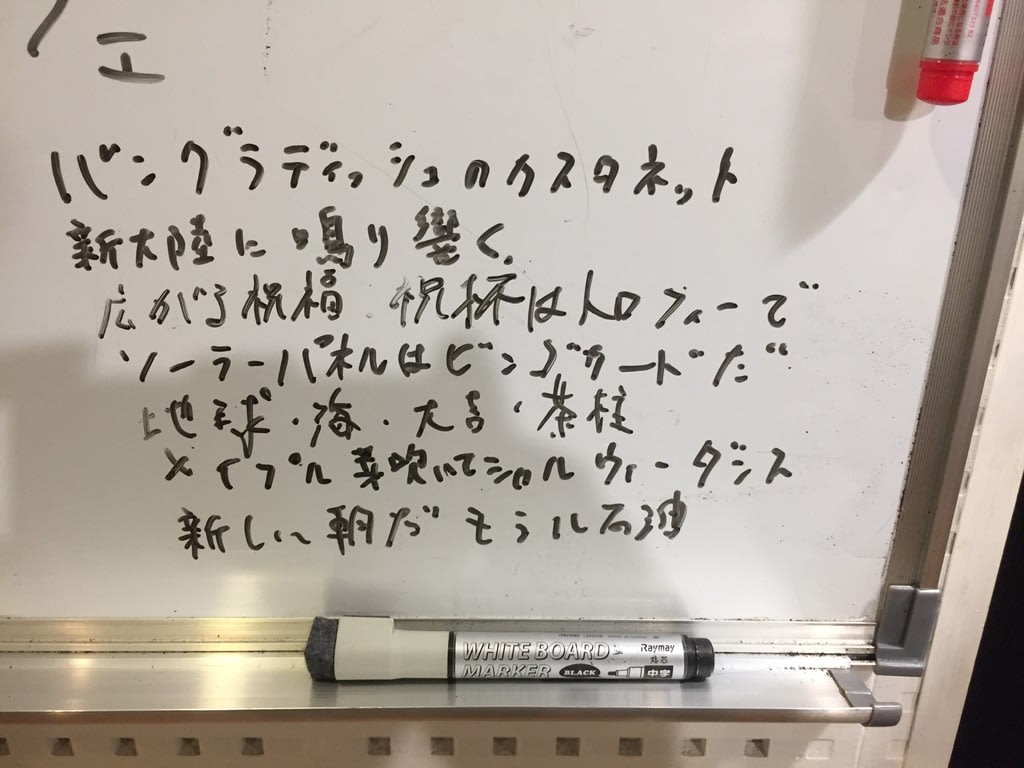 エ
バングラディッシュのカスタネット
新大陸に鳴り響く。
広がる祝福 祝杯はトロフィーで
ソーラーパネルはビンゴカードだ
地球・海・大吉・茶柱
メイプル 芽吹いてシャルウィーダンス
新しい朝だ モラル石油
WHITE BOARD
MARKER
BLACK
Raymay
丸芯
中字